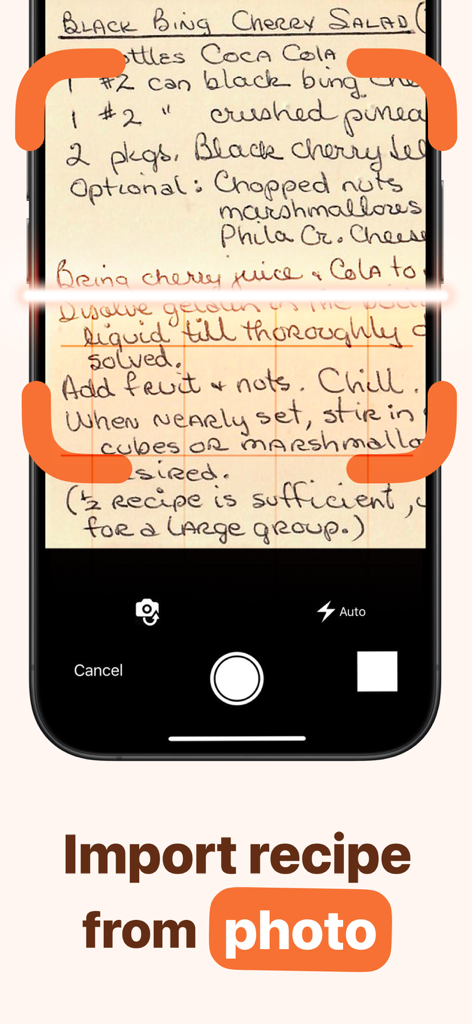 BLACK BING CHERRY SALAD (
ottles COCA COLA
1 #2 can black bing che
1 #2 " crushed pinea
2 pkgs. Black cherry Jel
Optional: Chopped nuts
marshmallows
Phila Cr. Cheese
Bring cherry juice & Cola to
Disolve gelatin in the
liquid till thoroughly
solved.
Add fruit & nuts. Chill.
When nearly set, stir in
cubes or marshmallo
sired.
(½ recipe is sufficient,
for a large group.)
Auto
Cancel
Import recipe
from photo